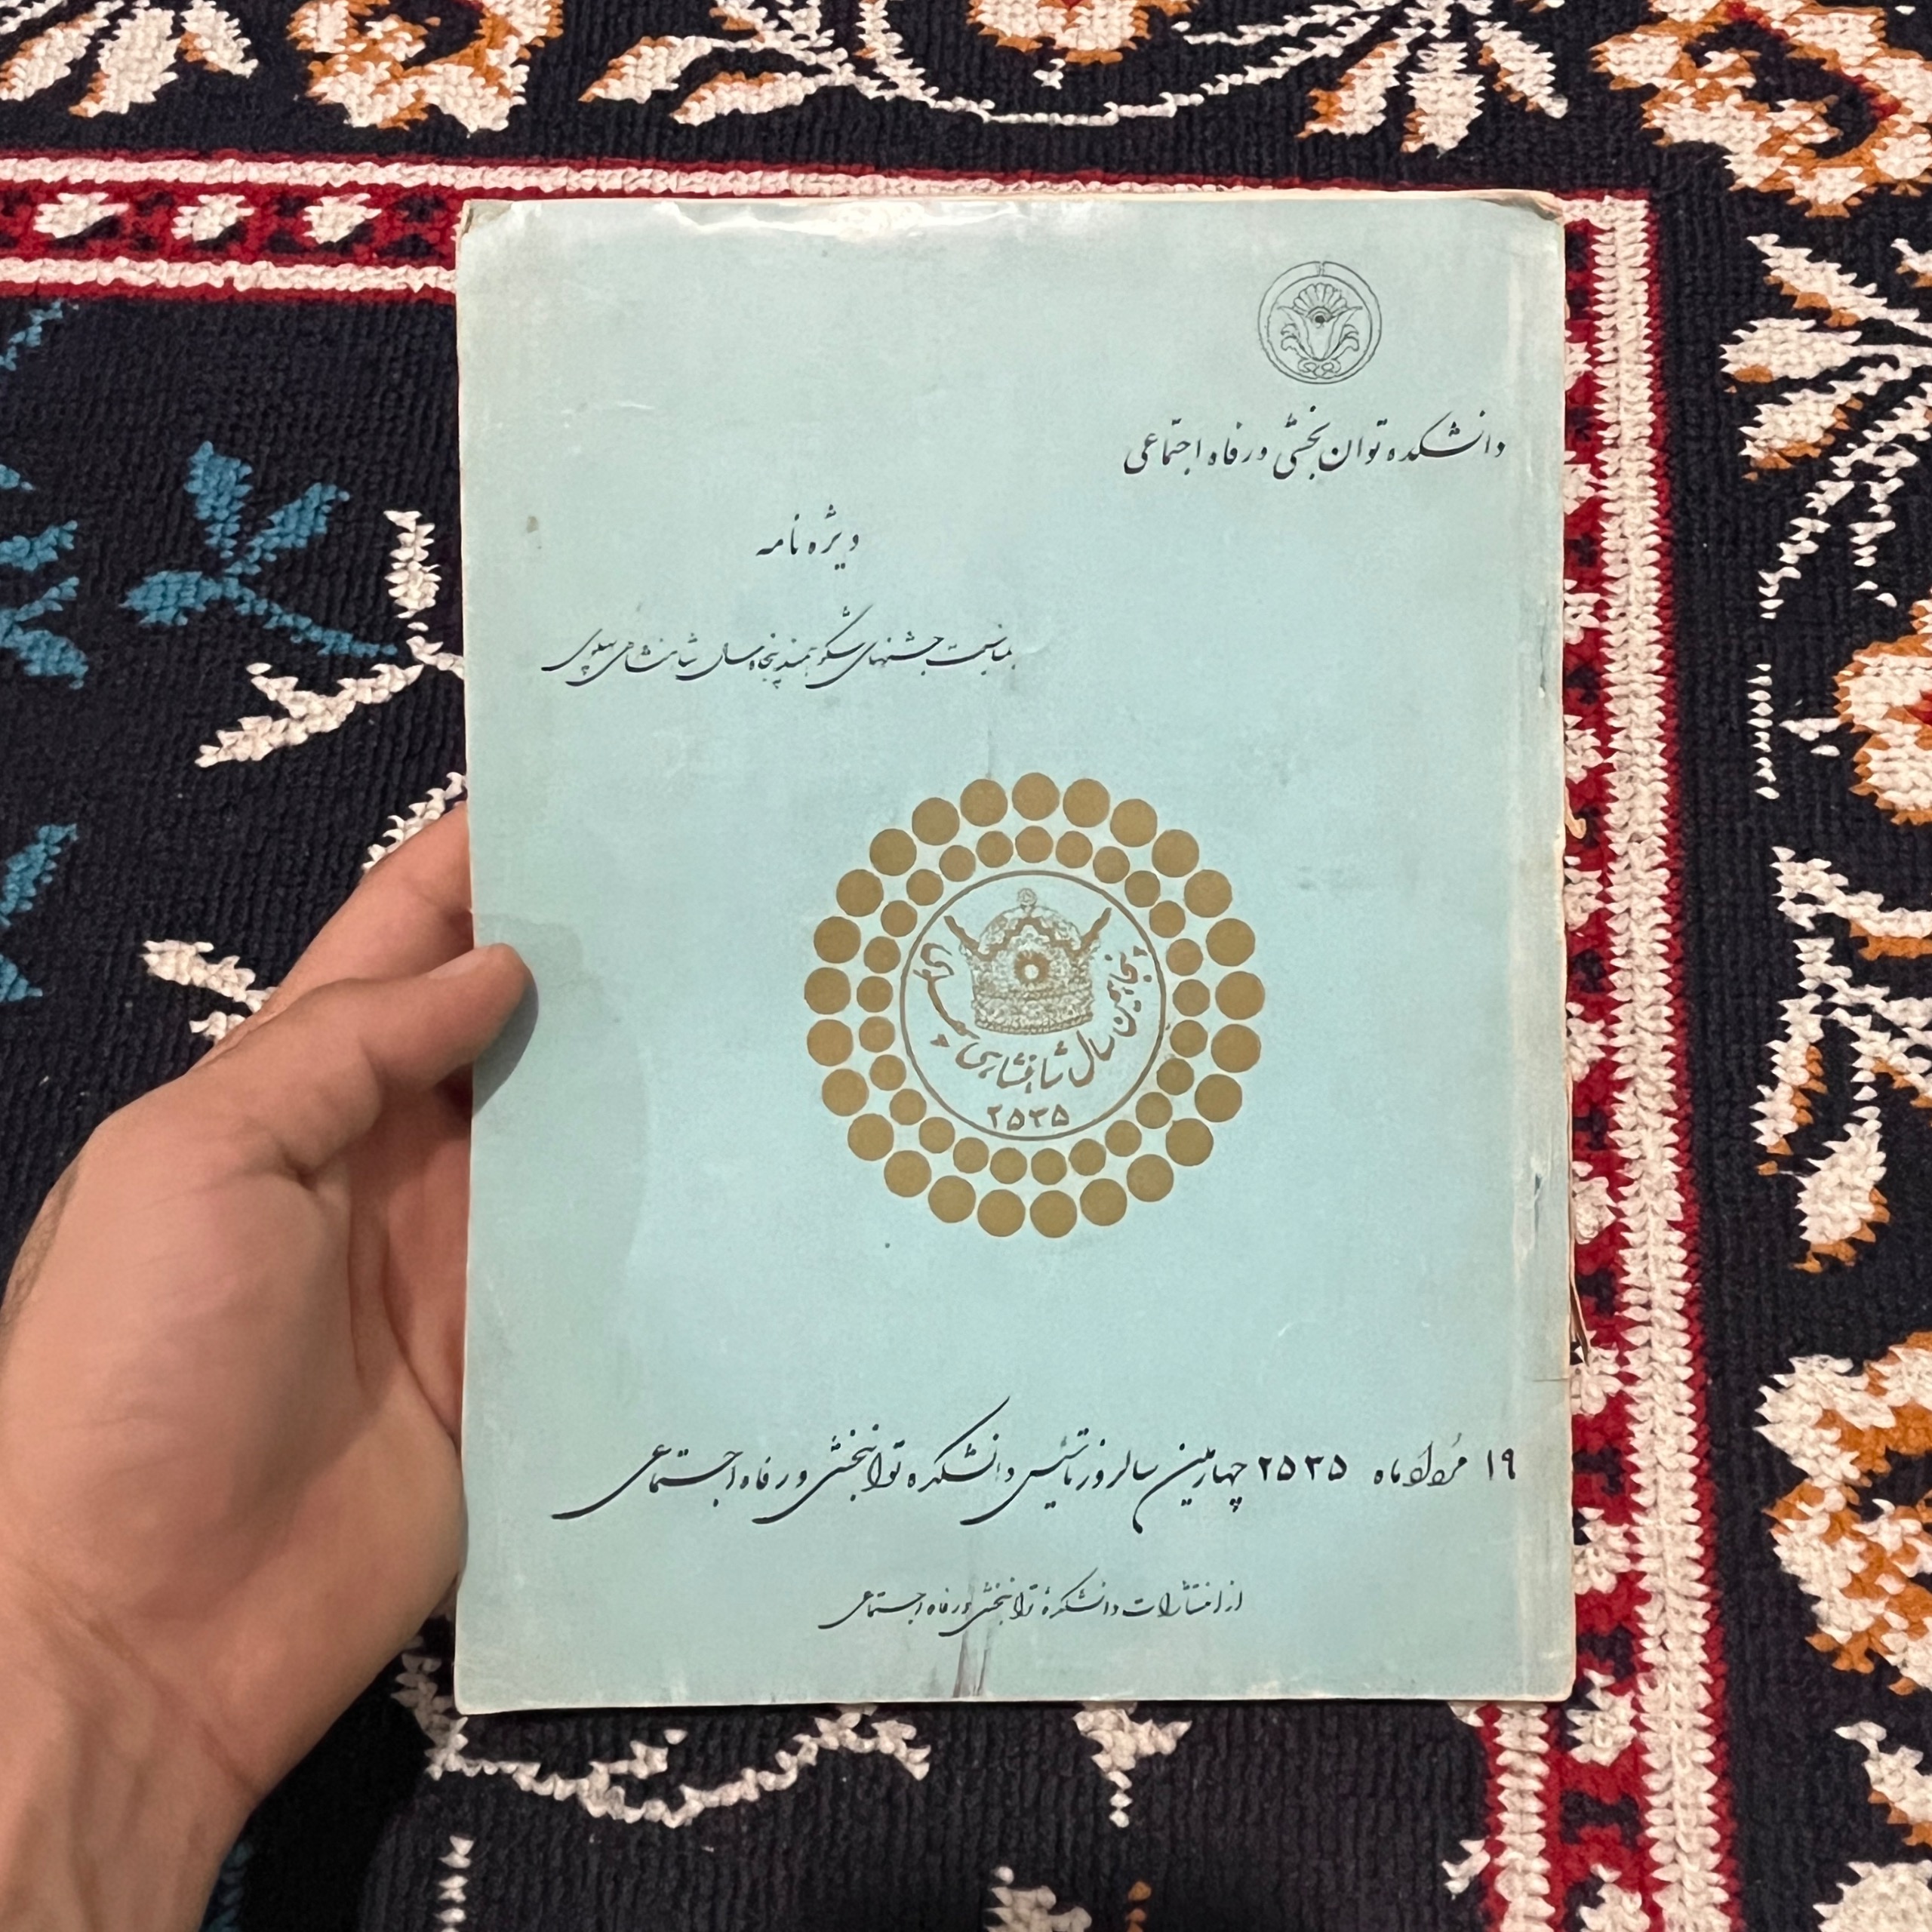 دانشکده توان بخشی و رفاه اجتماعی
ویژه نامه
بمناسبت جشنهای شکوهمند پنجاه سال شاهنشاهی پهلوی
پنجاهمین سال شاهنشاهی پهلوی
۲۵۳۵
۱۹ مرداد ماه ۲۵۳۵ چهارمین سالروز تأسیس دانشکده توانبخشی و رفاه اجتماعی
از انتشارات دانشکدهٔ توانبخشی و رفاه اجتماعی